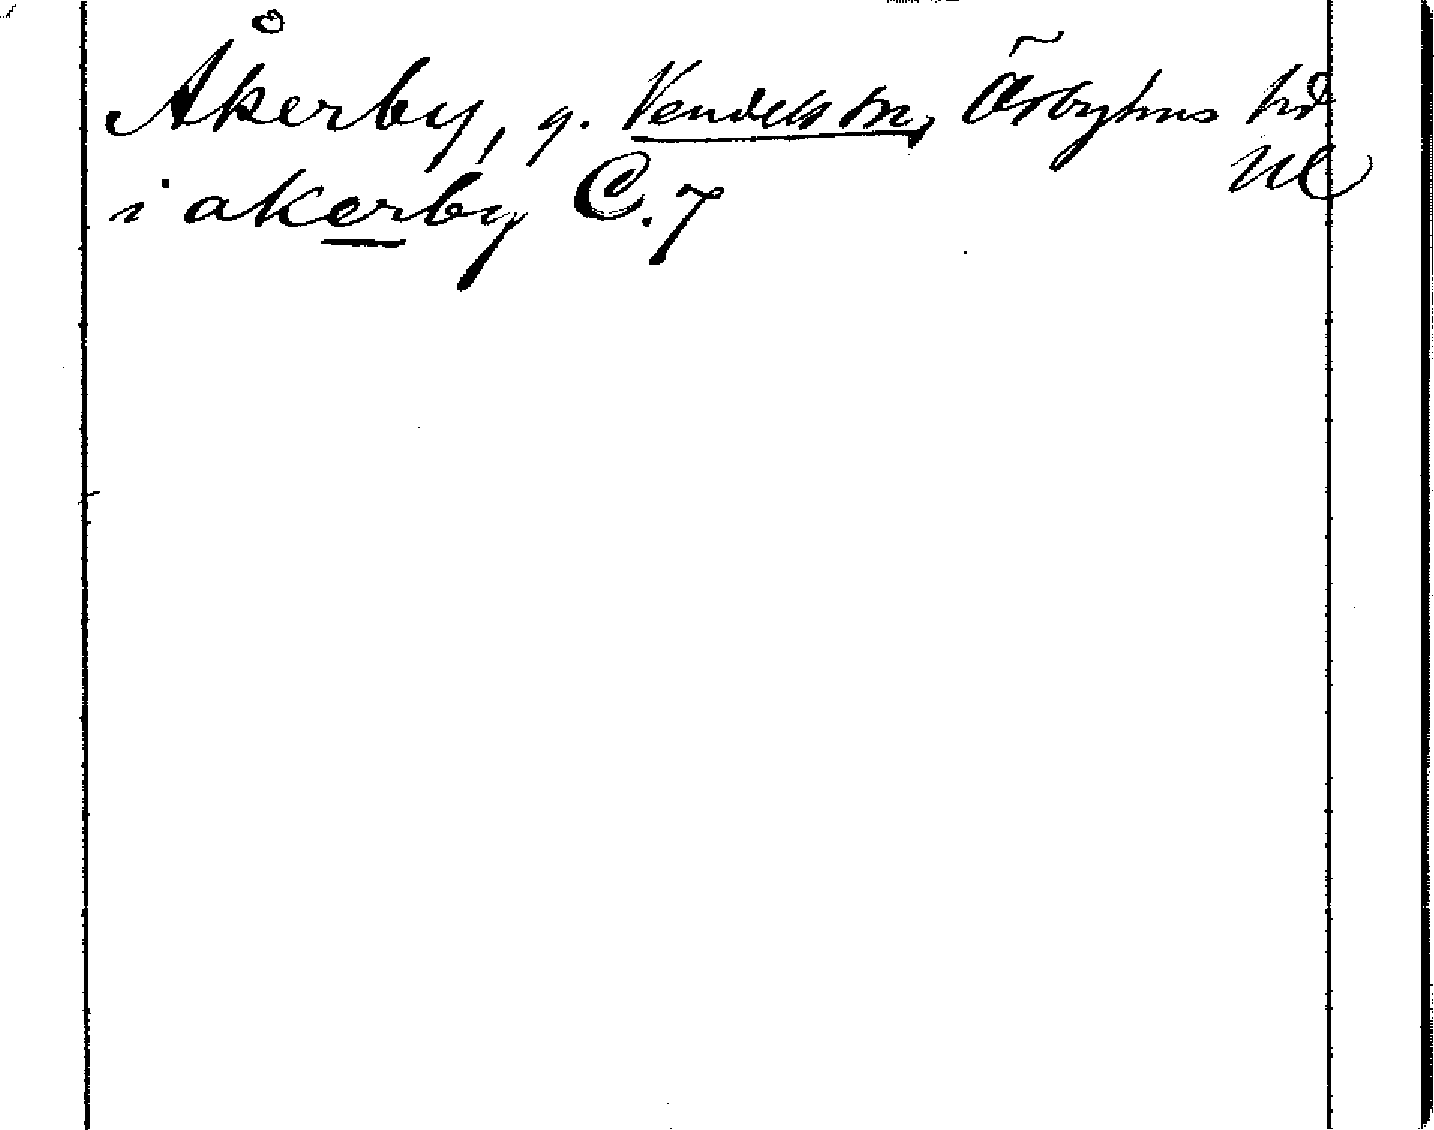 Åkerby, g. Vendels sn, Örbyhus hd
Ul
i akerby C.7